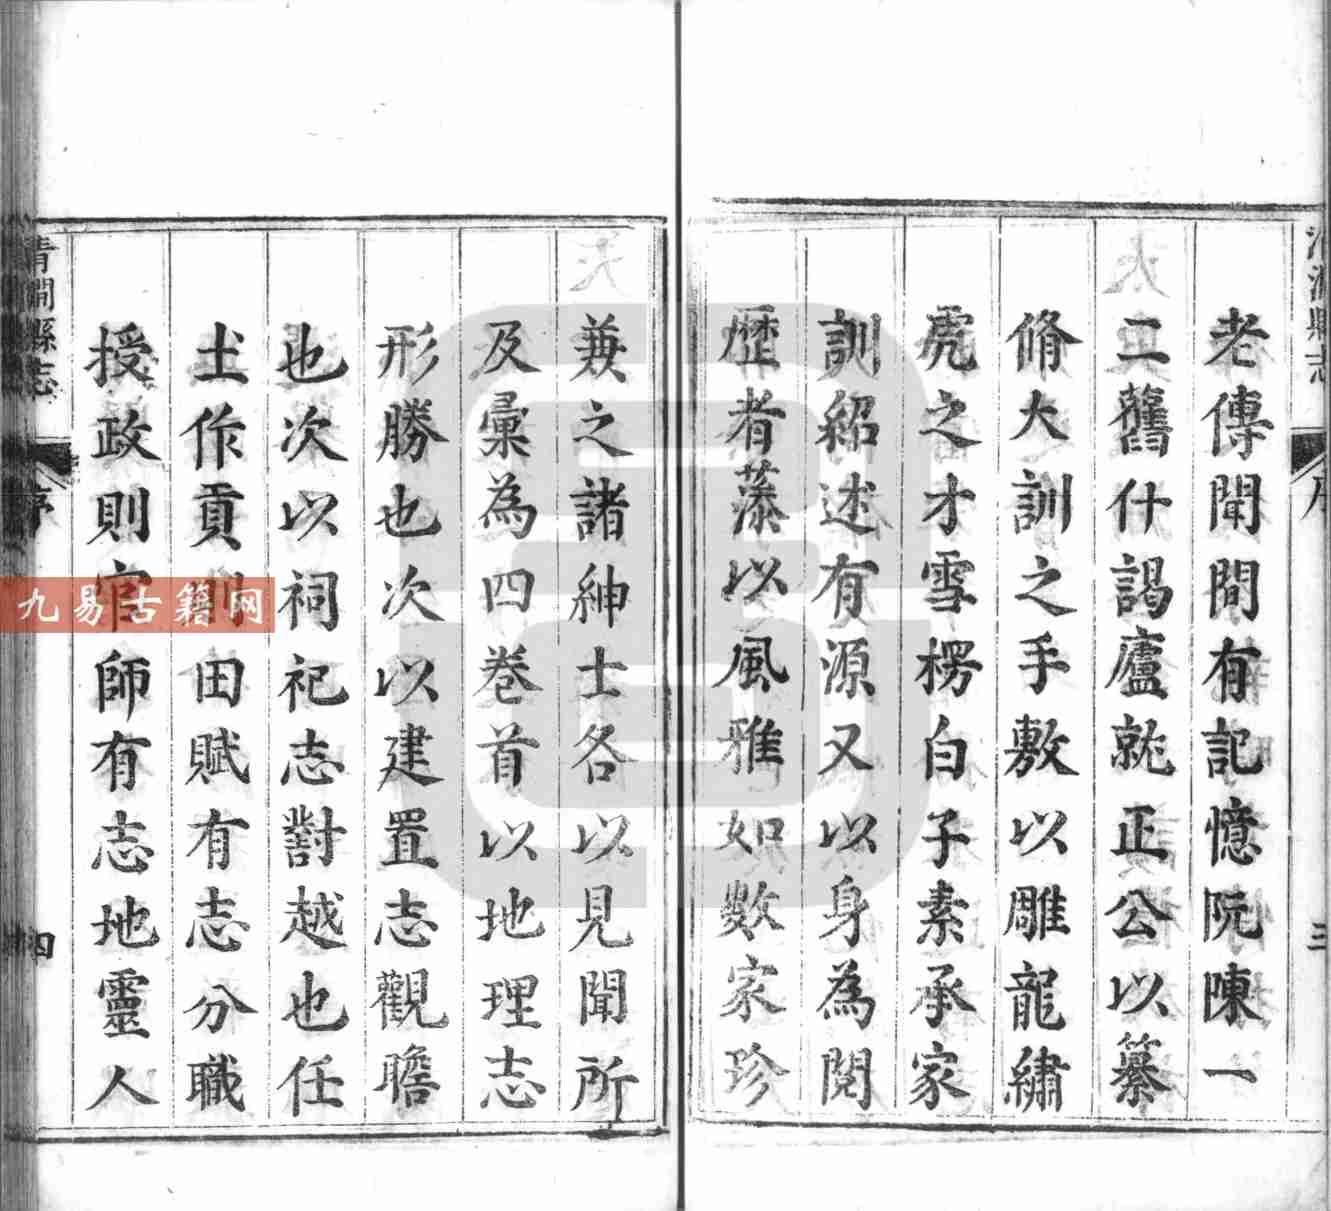 老傳聞間有記憶阮陳一
二舊什謁廬就正公以纂
脩大訓之手敷以雕龍繡
虎之才雪楞白子素承家
訓紹述有源又以身為閱
歷者藻以風雅如數家珍
三
兼之諸紳士各以見聞所
及彙為四卷首以地理志
形勝也次以建置志觀瞻
也次以祠祀志對越也任
土作貢則田賦有志分職
授政則官師有志地靈人
青澗縣志
序
四
九易古籍网